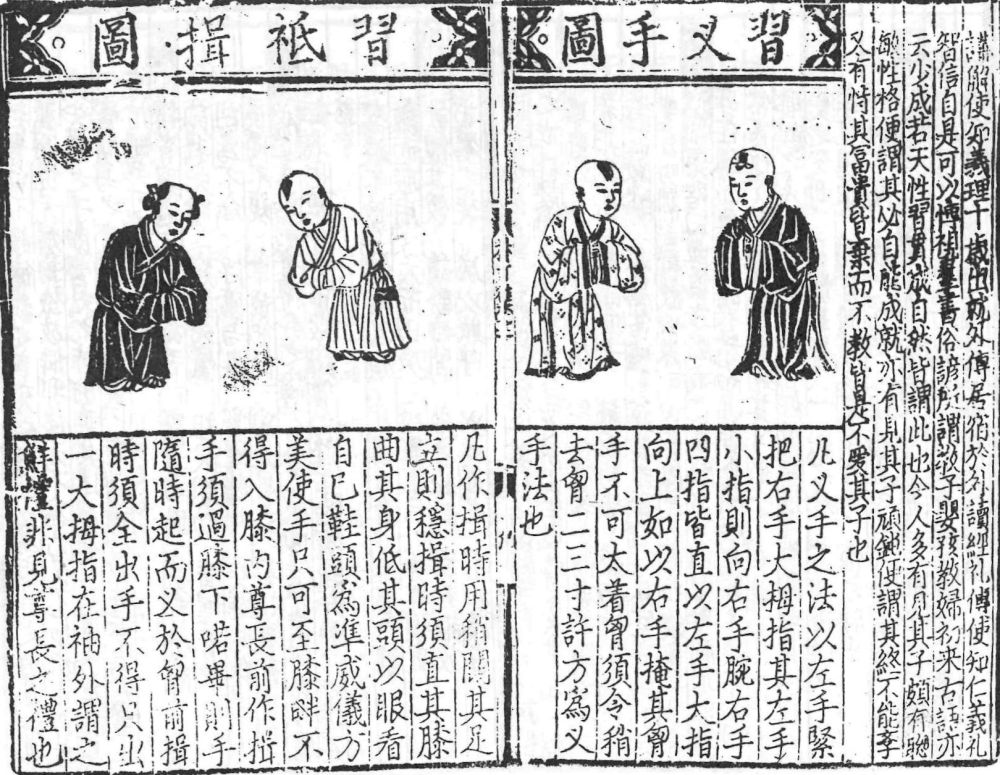 講解使知義理十歲出就外傅居宿於外讀經礼傅使知仁義礼
智信自是可以博視羣書俗諺所謂教子嬰孩教婦初来古語亦
云少成若天性習貫成自然皆謂此也今人多有見其子頗有聰
敏性格便謂其必自能成就亦有見其子頑鈍便謂其終不能孝
又有恃其富貴皆棄而不教皆是不愛其子也
習叉手圖
凡叉手之法以左手緊
把右手大拇指其左手
小指則向右手腕右手
四指皆直以左手大指
向上如以右手掩其胷
手不可太着胷須令稍
去胷二三寸許方為叉
手法也
習祗揖圖
凡作揖時用稍闊其足
立則穩揖時須直其膝
曲其身低其頭以眼看
自己鞋頭為準威儀方
美使手只可至膝畔不
得入膝內尊長前作揖
手須過膝下喏畢則手
隨時起而叉於胷前揖
時須全出手不得只出
一大拇指在袖外謂之
鮮禮非見尊長之禮也